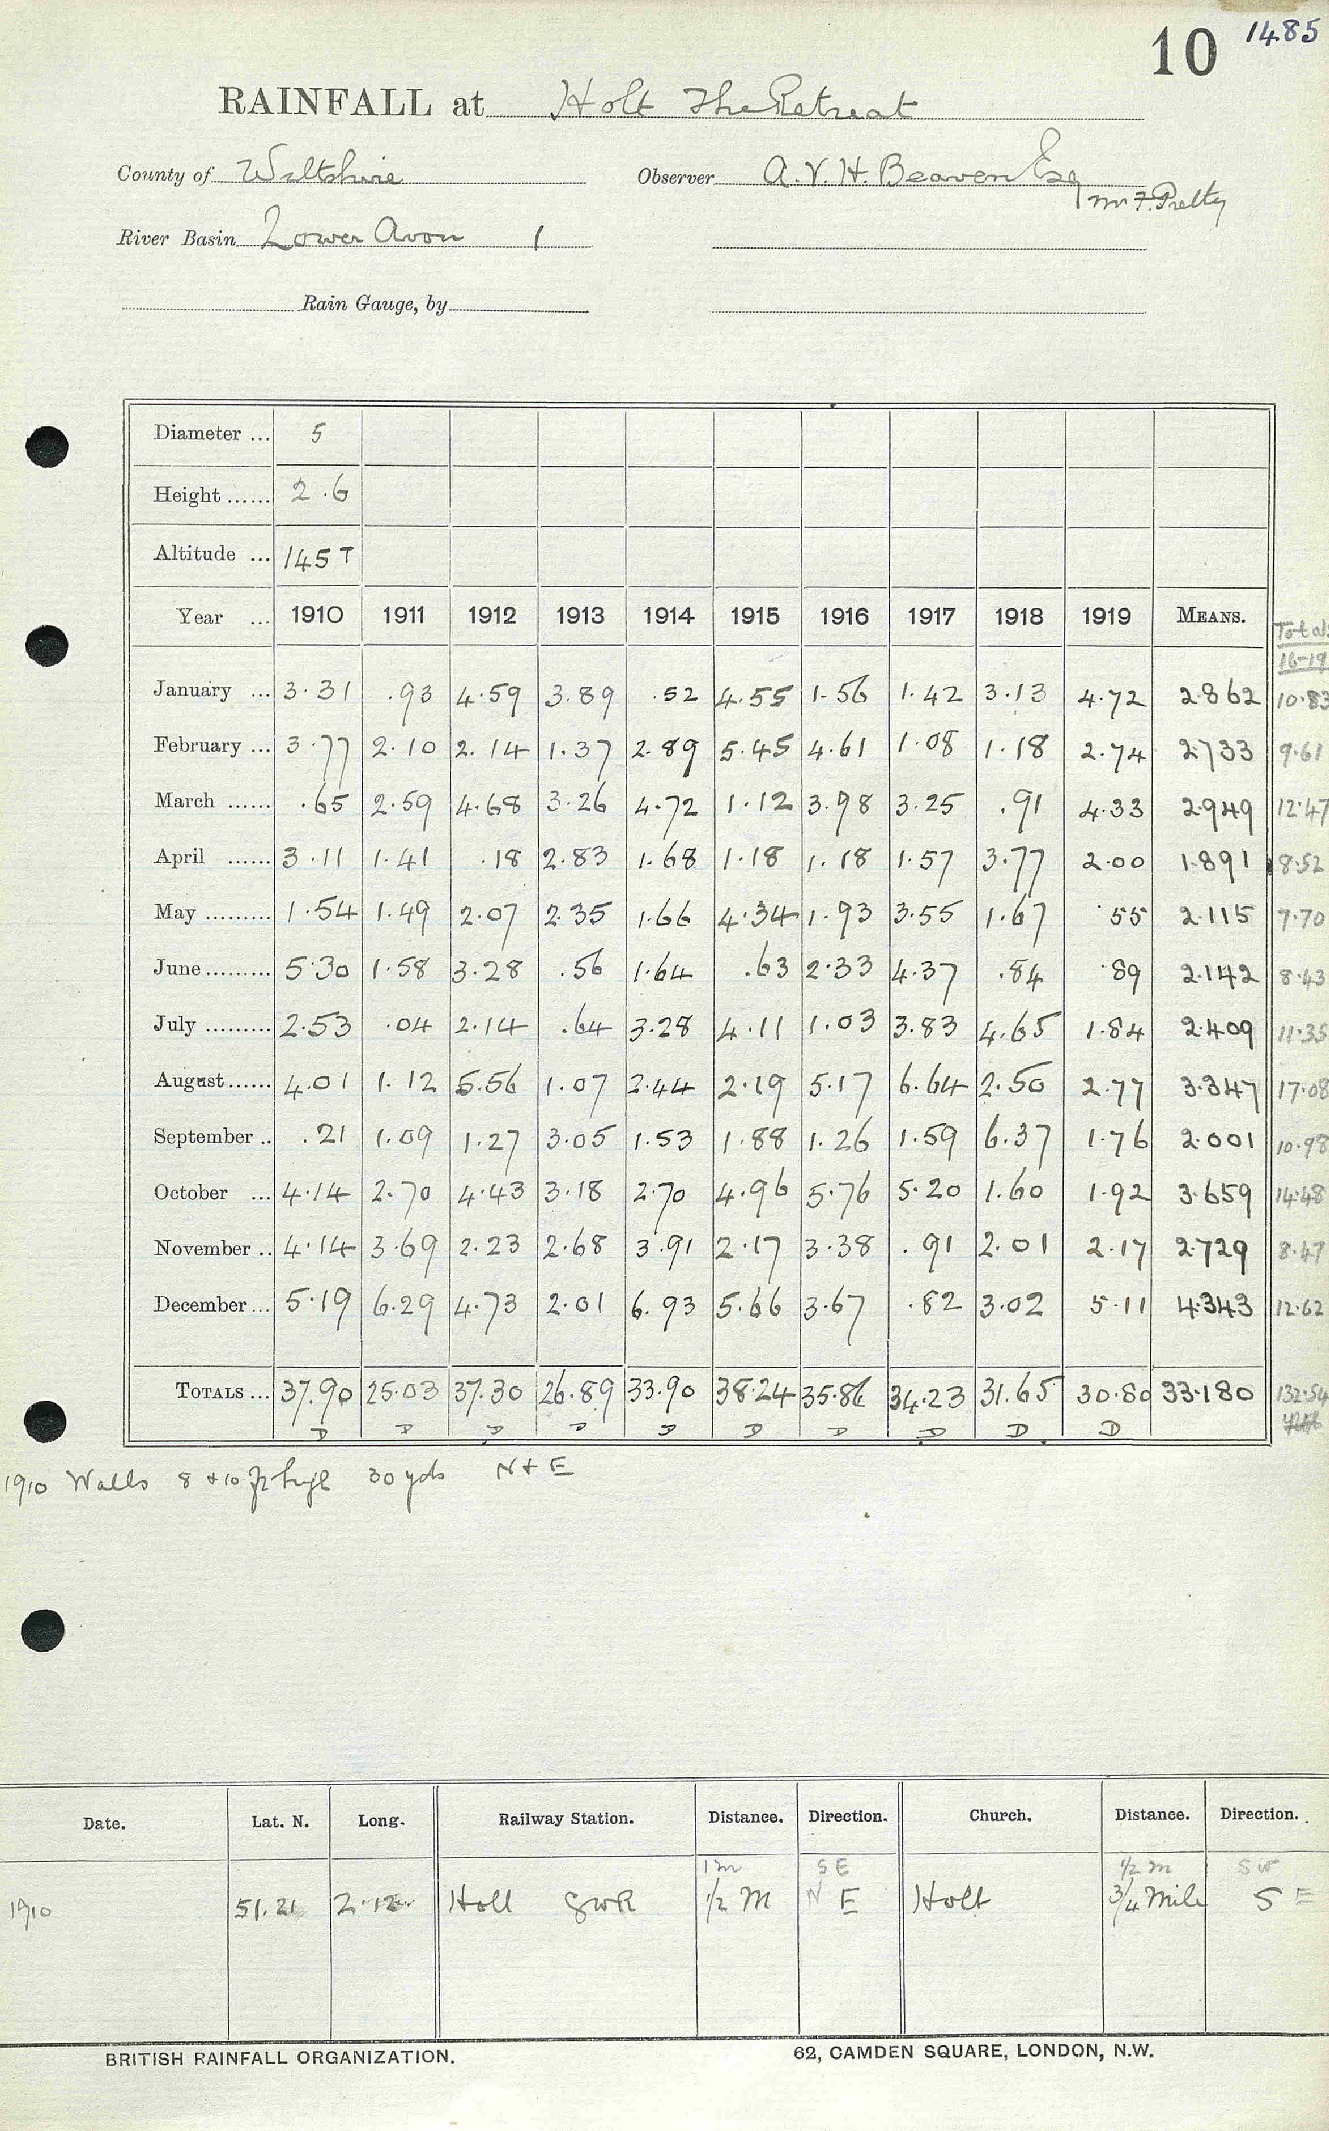 10 1485
RAINFALL at Holt The Retreat
County of Wiltshire Observer A.V.H. Beaven Esq
Mr F. Pretty
River Basin Lower Avon 1
Rain Gauge, by
Diameter ... 5
Height ...... 2.6
Altitude ... 145 T
Year ... 1910 1911 1912 1913 1914 1915 1916 1917 1918 1919 MEANS. Total
16-19
January ... 3.31 .93 4.59 3.89 .52 4.55 1.56 1.42 3.13 4.72 2.862 10.83
February ... 3.77 2.10 2.14 1.37 2.89 5.45 4.61 1.08 1.18 2.74 2.733 9.61
March ...... .65 2.59 4.68 3.26 4.72 1.12 3.98 3.25 .91 4.33 2.949 12.47
April ...... 3.11 1.41 .18 2.83 1.68 1.18 1.18 1.57 3.77 2.00 1.891 8.52
May ......... 1.54 1.49 2.07 2.35 1.66 4.34 1.93 3.55 1.67 .55 2.115 7.70
June ......... 5.30 1.58 3.28 .56 1.64 .63 2.33 4.37 .84 .89 2.142 8.43
July ......... 2.53 .04 2.14 .64 3.28 4.11 1.03 3.83 4.65 1.84 2.409 11.35
August ...... 4.01 1.12 5.56 1.07 2.44 2.19 5.17 6.64 2.50 2.77 3.347 17.08
September .. .21 1.09 1.27 3.05 1.53 1.88 1.26 1.59 6.37 1.76 2.001 10.98
October ... 4.14 2.70 4.43 3.18 2.70 4.96 5.76 5.20 1.60 1.92 3.659 14.48
November .. 4.14 3.69 2.23 2.68 3.91 2.17 3.38 .91 2.01 2.17 2.729 8.47
December ... 5.19 6.29 4.73 2.01 6.93 5.66 3.67 .82 3.02 5.11 4.343 12.62
TOTALS ... 37.90 25.03 37.30 26.89 33.90 38.24 35.86 34.23 31.65 30.80 33.180 132.54
D D D D D D D D D D
1910 Walls 8 + 10 ft high 30 yds N + E
Date. Lat. N. Long. Railway Station. Distance. Direction. Church. Distance. Direction.
1 m SE 1/2 m SW
1910 51.21 2.12 Holt GWR 1/2 M N E Holt 3/4 Mile S E
BRITISH RAINFALL ORGANIZATION. 62, CAMDEN SQUARE, LONDON, N.W.